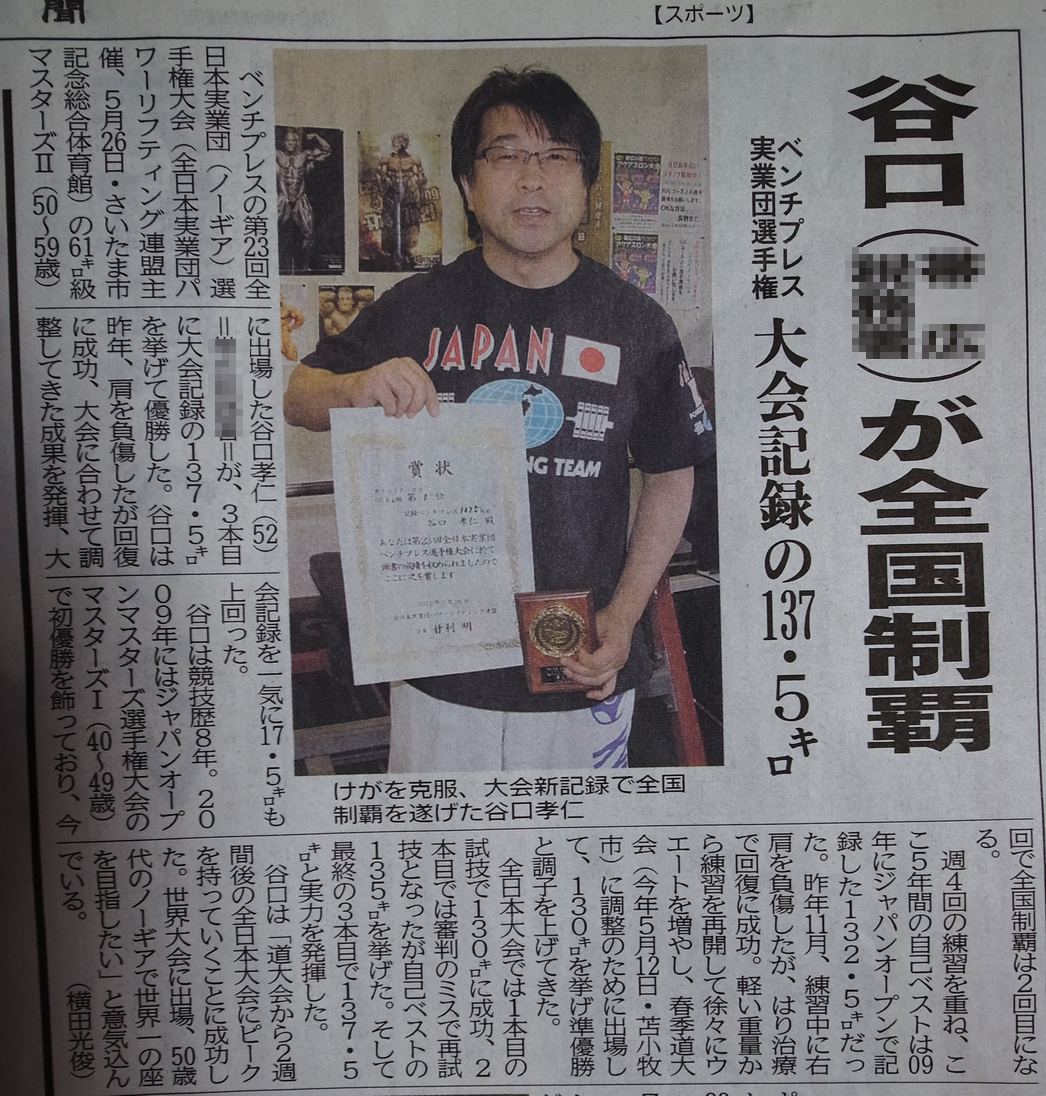 聞
【スポーツ】
谷口（
）が全国制覇
ベンチプレス
実業団選手権
大会記録の137・5㌔
ベンチプレスの第23回全
日本実業団（ノーギア）選
手権大会（全日本実業団パ
ワーリフティング連盟主
催、5月26日・さいたま市
記念総合体育館）の61㌔級
マスターズⅡ（50～59歳）
に出場した谷口孝仁（52）
＝　＝が、3本目
に大会記録の137・5㌔
を挙げて優勝した。谷口は
昨年、肩を負傷したが回復
に成功、大会に合わせて調
整してきた成果を発揮、大
会記録を一気に17・5㌔も
上回った。
谷口は競技歴8年。20
09年にはジャパンオープ
ンマスターズ選手権大会の
マスターズⅠ（40～49歳）
で初優勝を飾っており、今
回で全国制覇は2回目にな
る。
週4回の練習を重ね、こ
こ5年間の自己ベストは09
年にジャパンオープンで記
録した132・5㌔だっ
た。昨年11月、練習中に右
肩を負傷したが、はり治療
で回復に成功。軽い重量か
ら練習を再開して徐々にウ
エートを増やし、春季道大
会（今年5月12日・苫小牧
市）に調整のために出場し
て、130㌔を挙げ準優勝
と調子を上げてきた。
全日本大会では1本目の
試技で130㌔に成功、2
本目では審判のミスで再試
技となったが自己ベストの
135㌔を挙げた。そして
最終の3本目で137・5
㌔と実力を発揮した。
谷口は「道大会から2週
間後の全日本大会にピーク
を持っていくことに成功し
た。世界大会に出場、50歳
代のノーギアで世界一の座
を目指したい」と意気込ん
でいる。（横田光俊）
けがを克服、大会新記録で全国
制覇を遂げた谷口孝仁
JAPAN
NG TEAM
賞状
第1位
記録ベンチプレス137.5kg
谷口 孝仁 殿
あなたは第23回全日本実業団
ベンチプレス選手権大会に於て
頭書の成績を収められましたので
ここに之を賞します